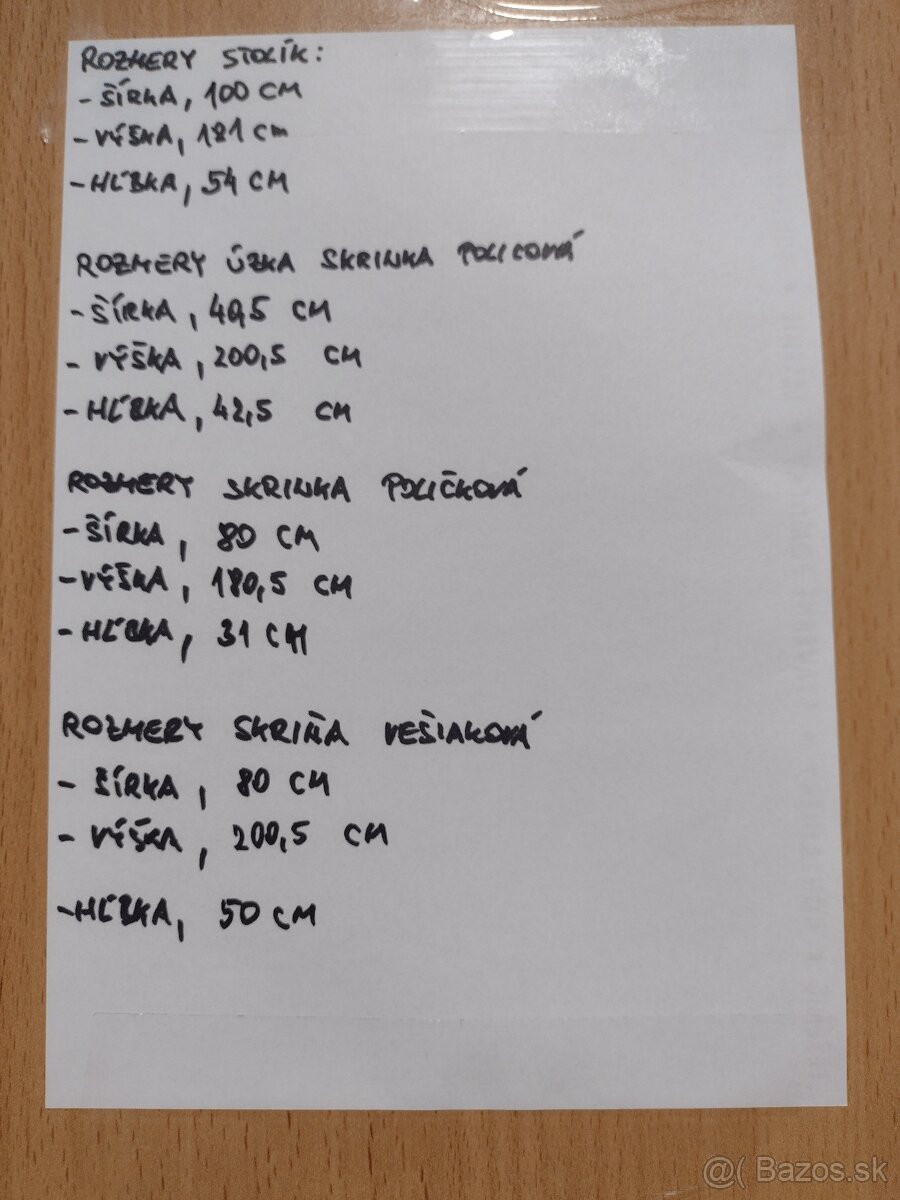 ROZMERY STOLÍK:
- ŠÍRKA, 100 CM
- VÝŠKA, 181 cm
- HĹBKA, 54 CM
ROZMERY ÚZKA SKRINKA POLICOVÁ
- ŠÍRKA, 40,5 CM
- VÝŠKA, 200,5 CM
- HĹBKA, 42,5 CM
ROZMERY SKRINKA POLIČKOVÁ
- ŠÍRKA, 80 CM
- VÝŠKA, 180,5 CM
- HĹBKA, 31 CM
ROZMERY SKRIŇA VEŠIAKOVÁ
- ŠÍRKA, 80 CM
- VÝŠKA, 200,5 CM
- HĹBKA, 50 CM
@( Bazos.sk